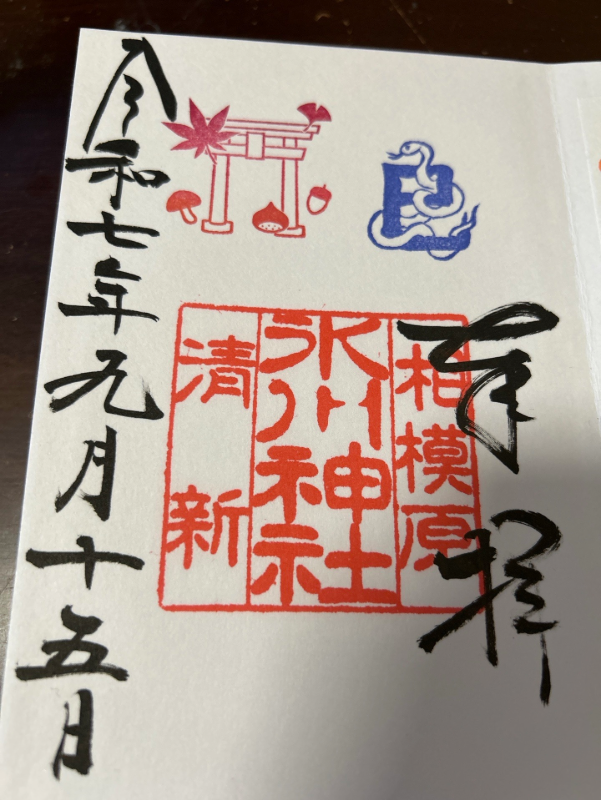 奉拝
相模原
氷川神社
清新
巳
令和七年九月十五日